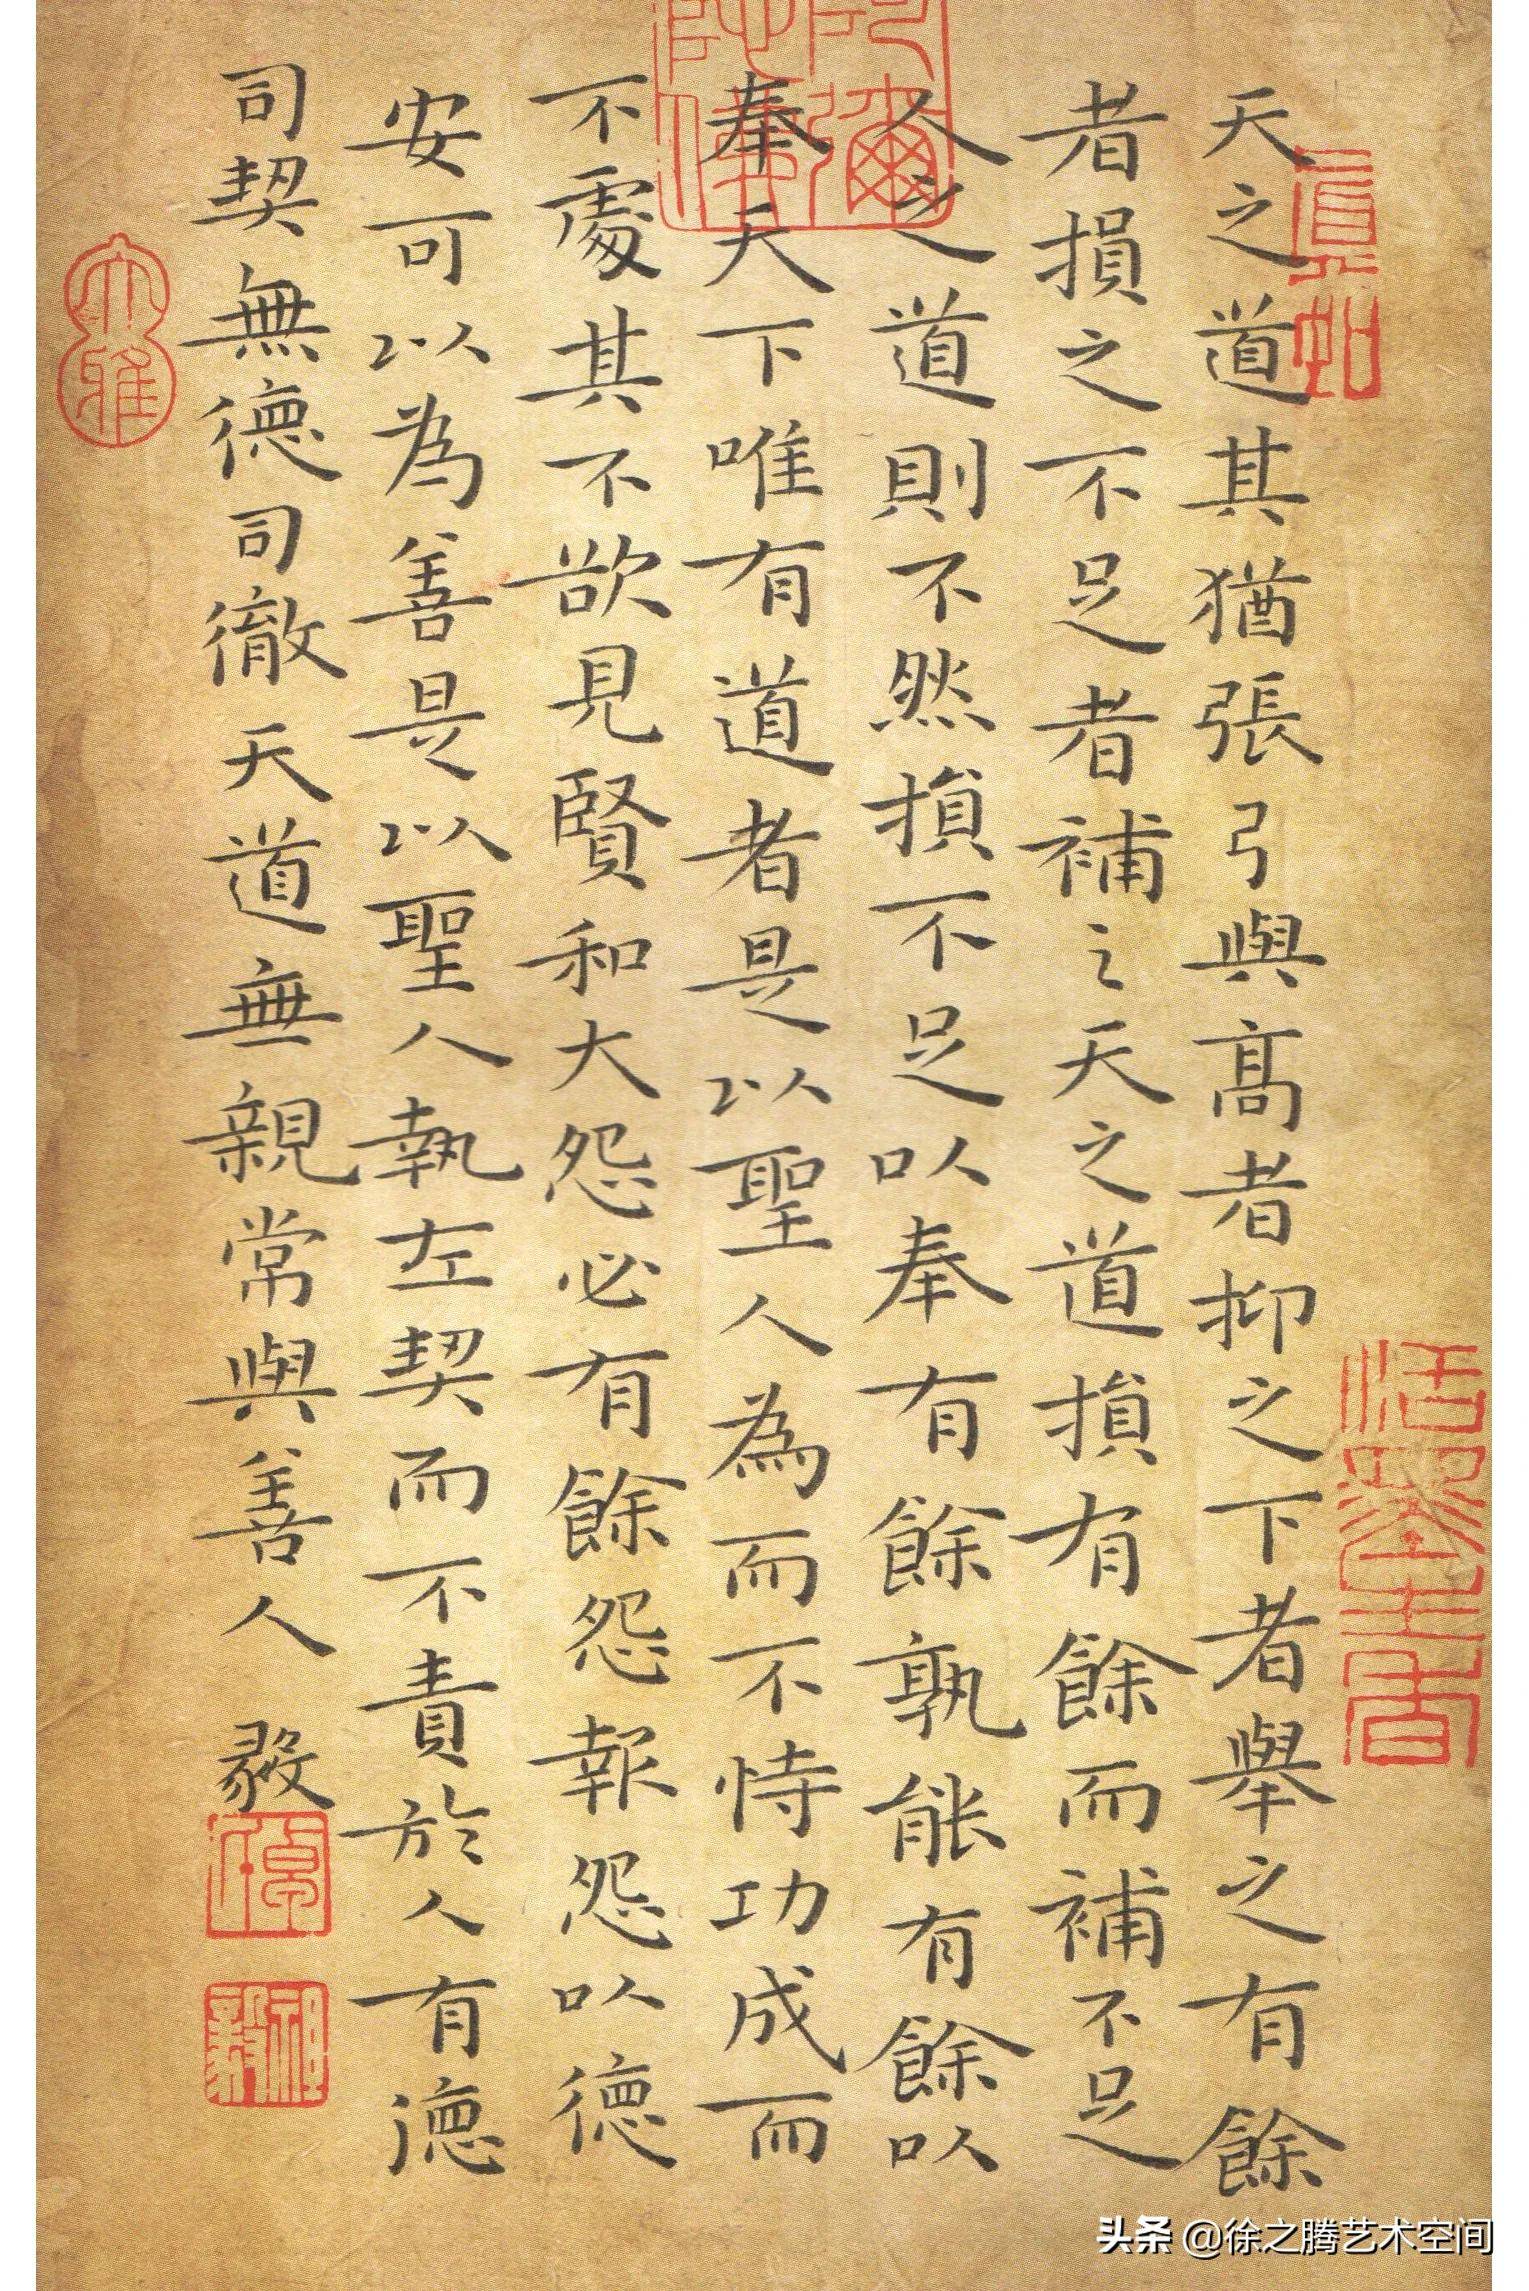 天之道其猶張弓與高者抑之下者舉之有餘
者損之不足者補之天之道損有餘而補不足
人之道則不然損不足以奉有餘孰能有餘以
奉天下唯有道者是以聖人為而不恃功成而
不處其不欲見賢和大怨必有餘怨報怨以德
安可以為善是以聖人執左契而不責於人有德
司契無德司徹天道無親常與善人 毅
大雅
头条 @徐之腾艺术空间